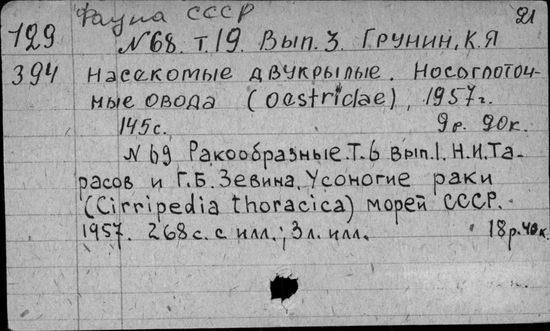 Фауна СССР 21
129 N68. т.19. Вып.3. Грунин, К.Я
394 Насекомые двукрылые. Носоглоточ-
ные овода (Oestridae), 1957г.
145с. 9р. 90к.
N 69 Ракообразные. Т.6 вып.1. Н.И.Та-
расов и Г.Б. Зевина. Усоногие раки
(Cirripedia thoracica) морей СССР.
1957. 268с. с илл.; 3л. илл. 18р.40к.